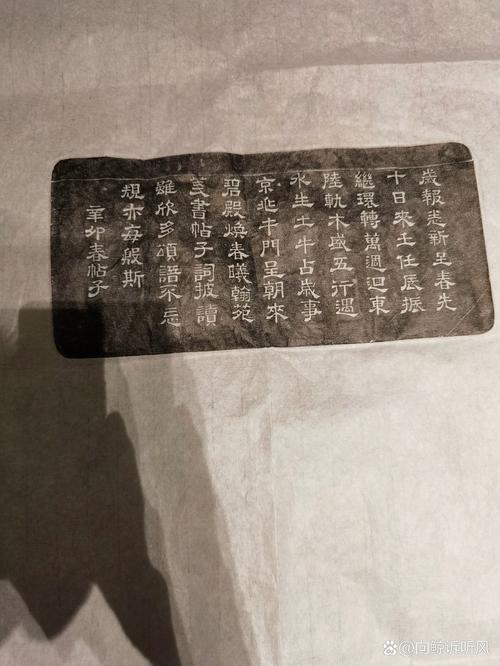 歲報新春先
十日來土任辰
繼環轉萬週迴東
陸軌木盛五行遇
水生土牛占歲事
京兆午門呈朝來
碧殿煥春曦翰苑
書帖子詞披讀
雖欣多頌語不忘
規亦每斯
辛卯春帖子
向鲸诉听风